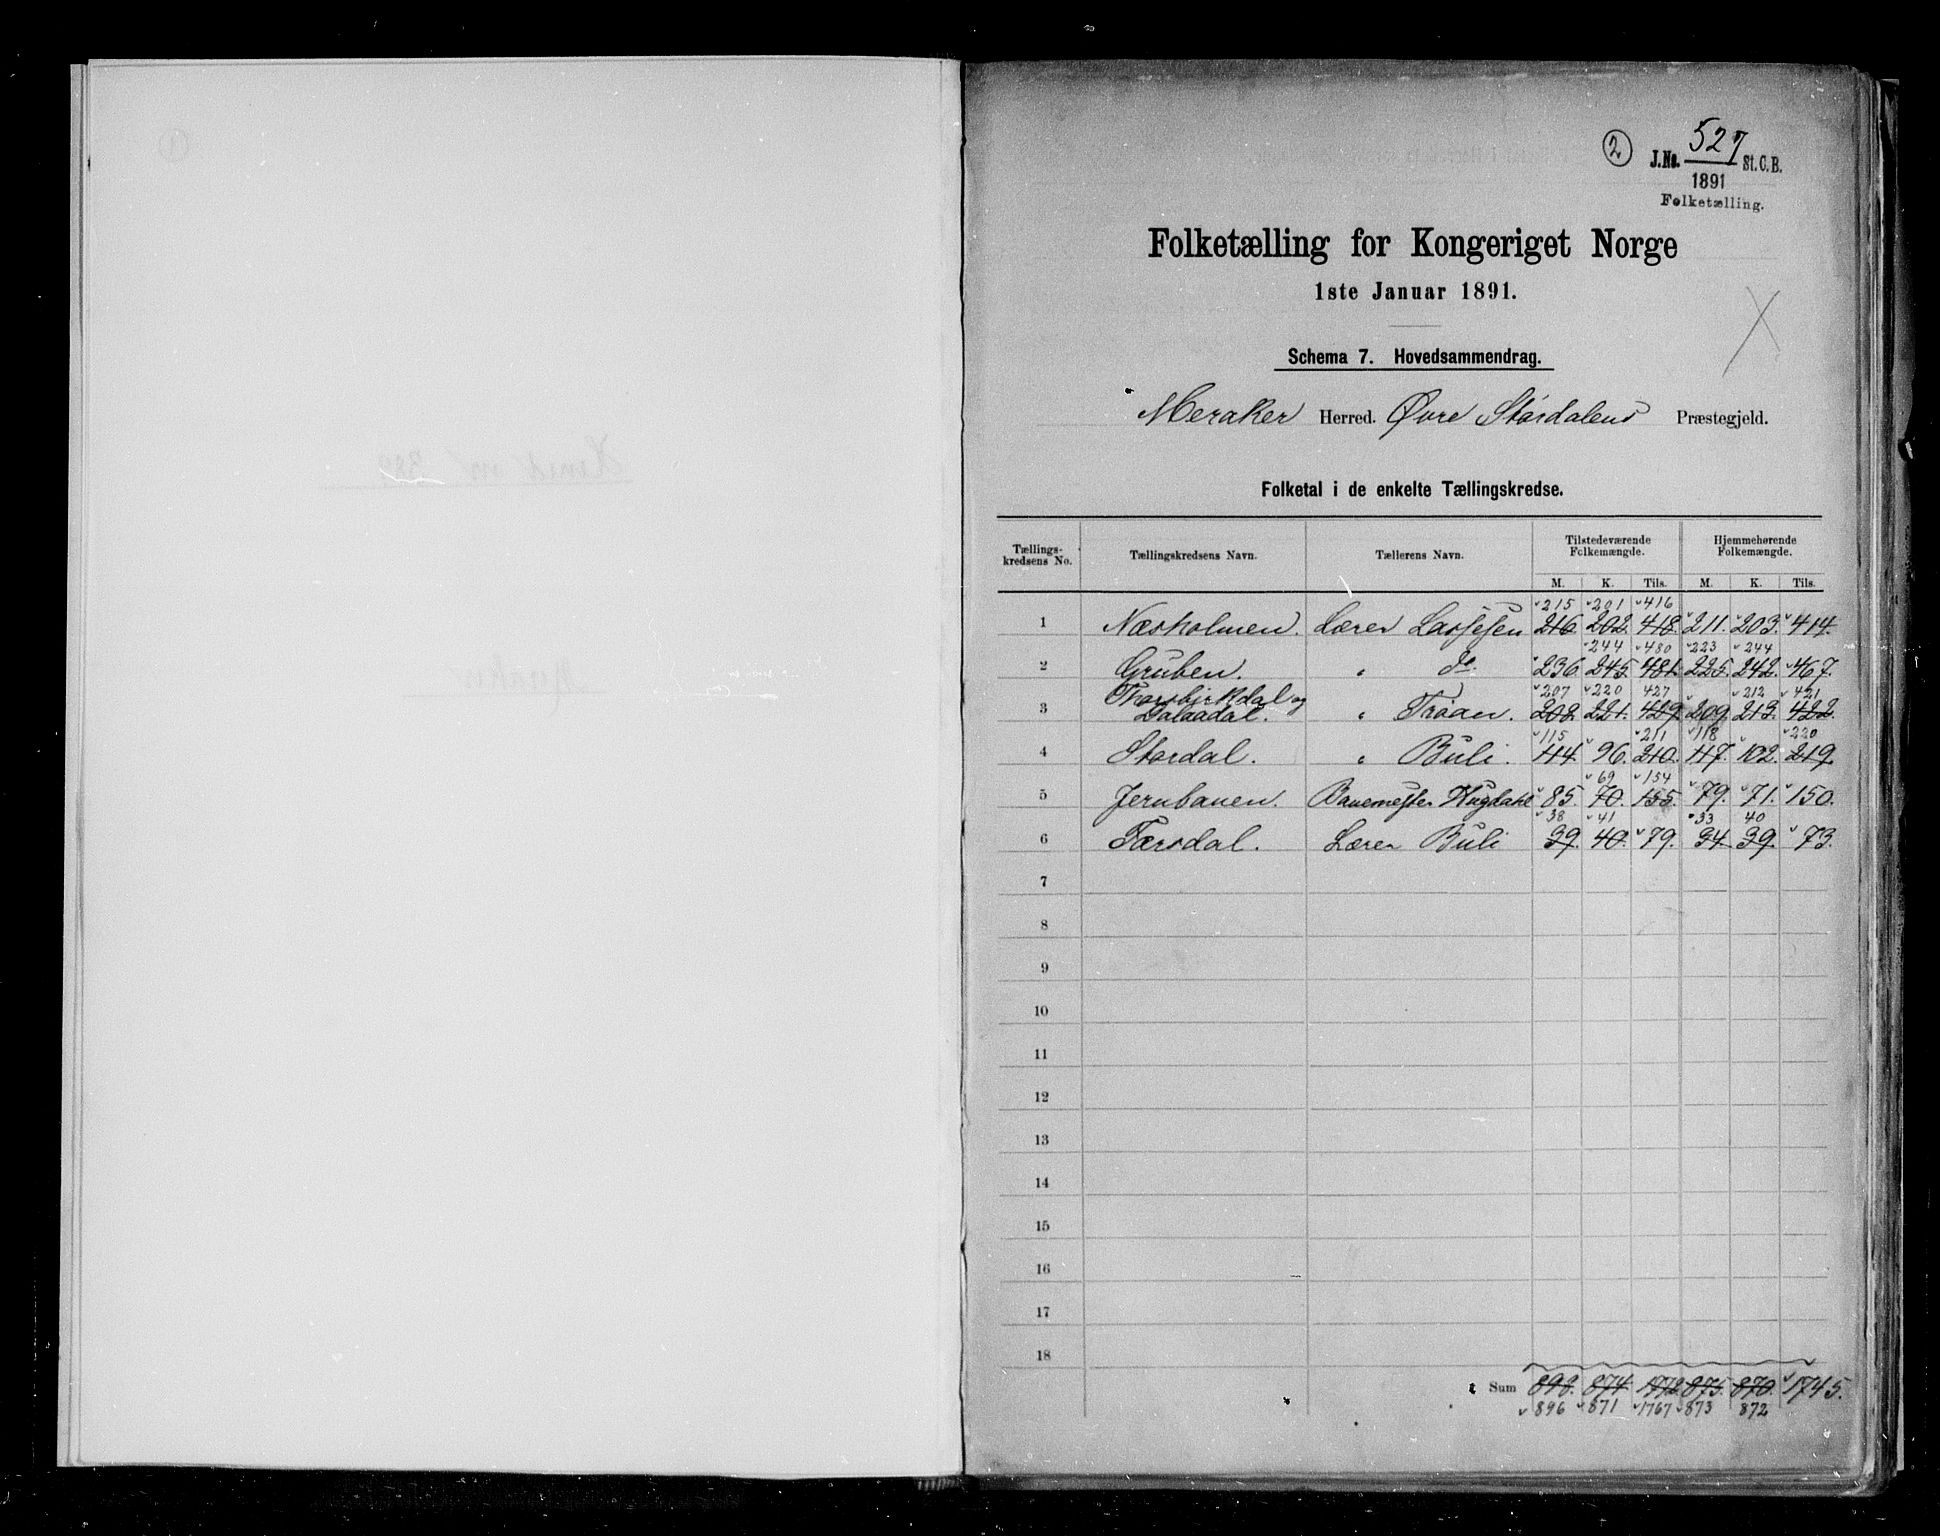 2
J.No. 527 St.C.B.
1891
Folketælling.
Folketælling for Kongeriget Norge
1ste Januar 1891.
Schema 7. Hovedsammendrag.
Meraker Herred. Øvre Størdalens Præstegjeld.
Folketal i de enkelte Tællingskredse.
Tællings-kredsens No. Tællingskredsens Navn. Tællerens Navn. Tilstedeværende Folkemængde. Hjemmehørende Folkemængde.
M. K. Tils. M. K. Tils.
215 201 416
1 Næsholmen. Lærer Lassesen 216 202 418 211. 203. 414.
244 480 223 244
2 Gruben. " do. 236. 245 481. 225. 242. 467.
207 220 427 212 421
3 Thorsbjørkdal og Dalaadal. " Trøan. 208. 221. 429 209. 213. 422.
115 211 118 220
4 Stordal. " Buli. 114. 96. 210. 117. 102. 219.
69 154
5 Jernbanen. Banemester Hugdahl 85. 70. 155. 79. 71. 150.
38 41 33 40
6 Færsdal. Lærer Buli 39. 40. 79. 34. 39. 73.
7
8
9
10
11
12
13
14
15
16
17
18
Sum 898. 874 1772 875. 870. 1745.
896 871 1767 873 872